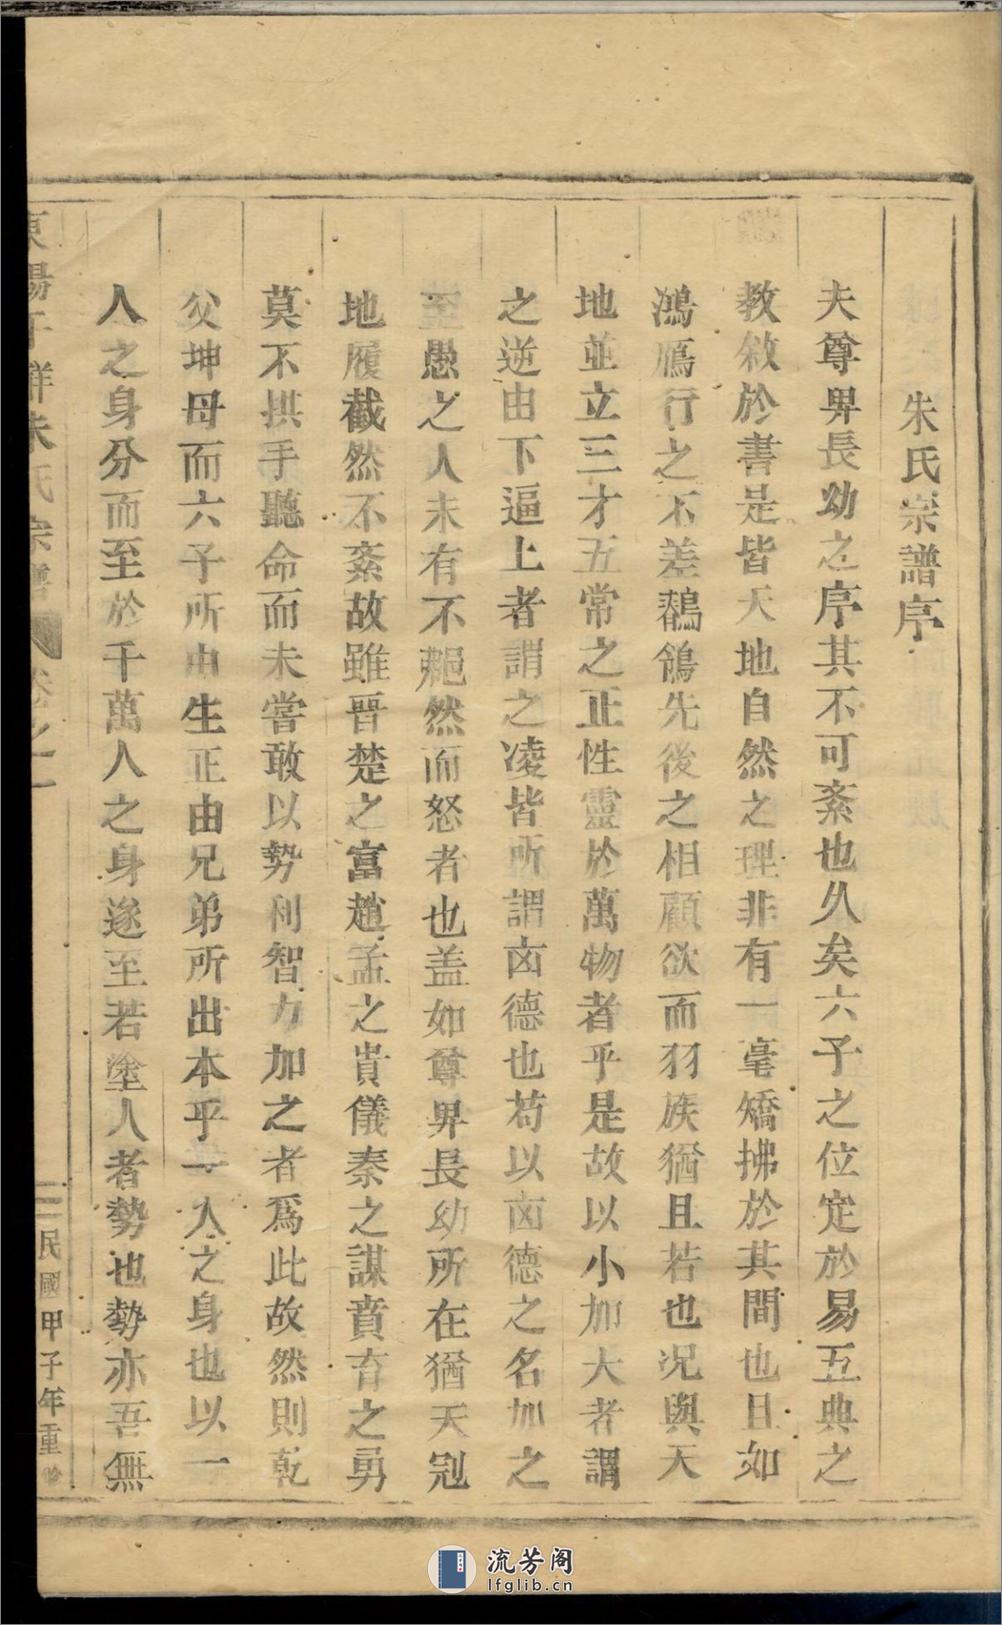 朱氏宗譜序
夫尊畀長幼之序其不可紊也久矣六子之位定於易五典之
教敘於書是皆天地自然之理非有一毫矯拂於其間也且如
鴻鴈行之不差鶺鴒先後之相顧欲而羽族猶且若也况與天
地並立三才五常之正性靈於萬物者乎是故以小加大者謂
之逆由下逼上者謂之凌皆所謂凶德也苟以凶德之名加之
至愚之人未有不赧然而怒者也盖如尊畀長幼所在猶天冠
地履截然不紊故雖晉楚之富趙孟之貴儀秦之謀賁育之勇
莫不拱手聽命而未嘗敢以勢利智力加之者爲此故然則乾
父坤母而六子所由生正由兄弟所出本乎一人之身也以一
人之身分而至於千萬人之身遂至若塗人者勢也勢亦吾無
東陽 朱氏宗譜 卷之一
民國甲子年重修
流芳阁
lfglib.cn